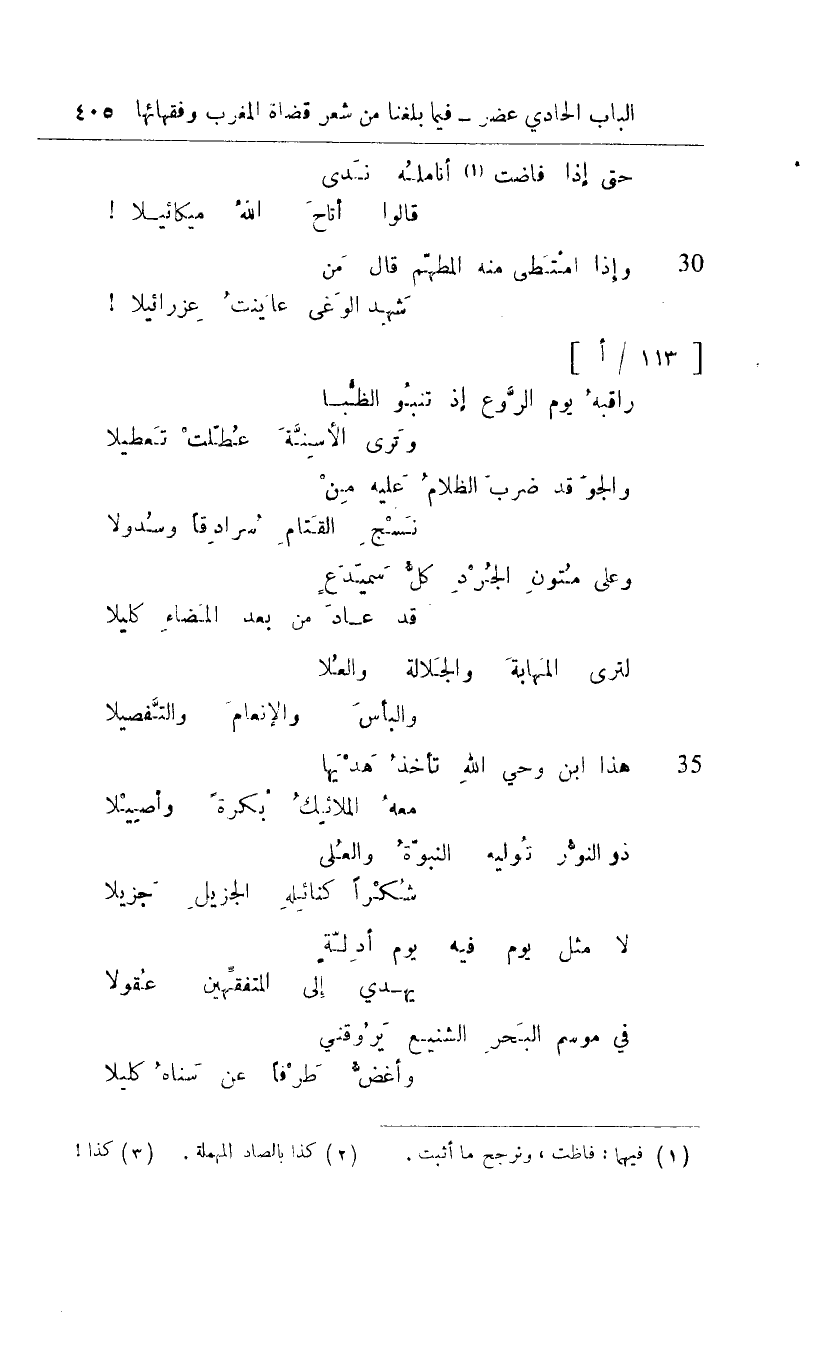 الباب الحادي عضر – فيما بلغنا من شعر قضاة المغرب وفقهائها ٤٠٥
حتى إذا فاضت (١) أناملُه نَدى
قالوا أتاحَ اللهُ ميكائيلا !
30 وإذا امْتَطى منه المطهّم قال مَن
شَهِد الوَغى عايَنتُ عِزرائيلا !
[ ١١٣ / أ ]
راقبهُ يوم الرَّوع إذ تنبُو الظُّبا
وتَرى الأسِنَّةَ عُطّلتْ تَعطيلا
والجوّ قد ضربَ الظلامُ عَليه مِنْ
نَسْجِ القَتامِ سُرادِقاً وسُدولا
وعلى مُتونِ الجُرْدِ كلُّ سَميَدَعٍ
قد عادَ من بعد المَضاءِ كليلا
لترى المَهابةَ والجَلالة والعُلا
والبأسَ والإنعامَ والتَّفصيلا
35 هذا ابن وحي اللهِ تأخذُ هَدْيَها
معهُ الملائِكُ بُكرةً وأصِيْلا
ذو النوُّر تُوليه النبوّةُ والعُلى
شُكْراً كنائِلِهِ الجزيلِ جَزيلا
لا مثل يوم فيه يوم أدِلّةٍ
يهدي إلى المتفقِّهين عُقولا
في موسم البَحرِ الشنيع يَرُوقني
وأغضُّ طَرْفاً عن سَناهُ كليلا
(١) فيهما : فاظت ، ونرجح ما أثبت . (٢) كذا بالصاد المهملة . (٣) كذا !